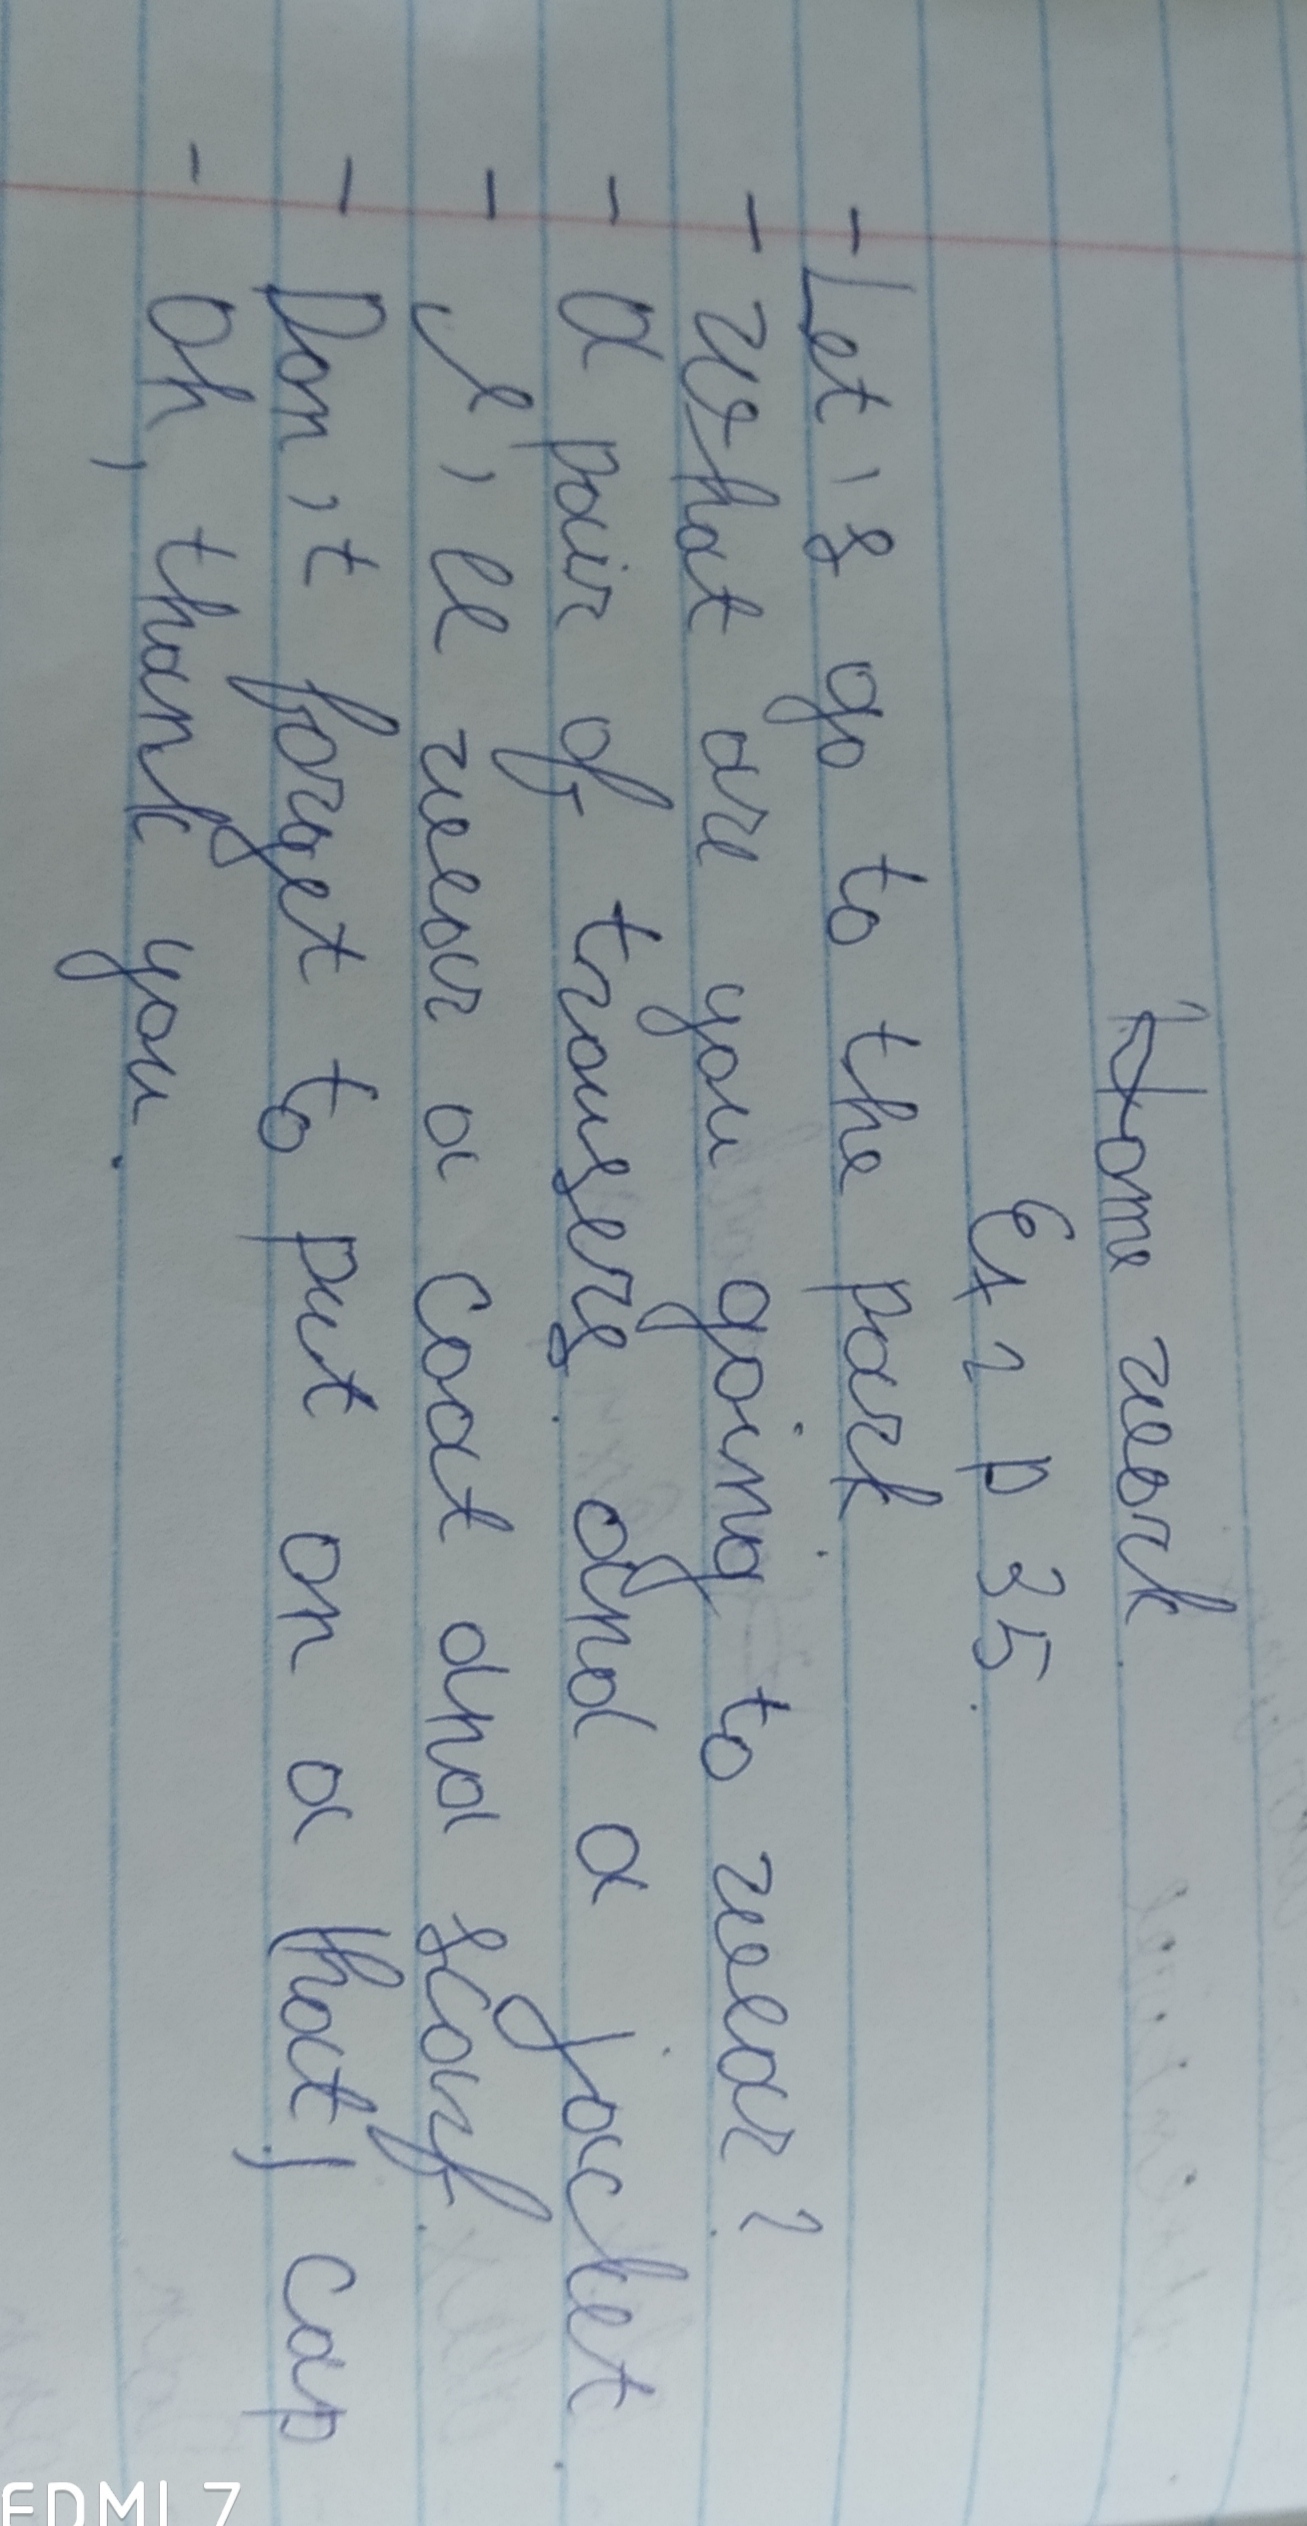 Home work.
Ex 2 p 35.
- Let,s go to the park.
- What are you going to wear?
- A pair of trousers. and a jacket.
- I,ll wear a coat and scarf.
- Don,t forget to put on a hat, cap
- Oh, thank you.
EDMI 7